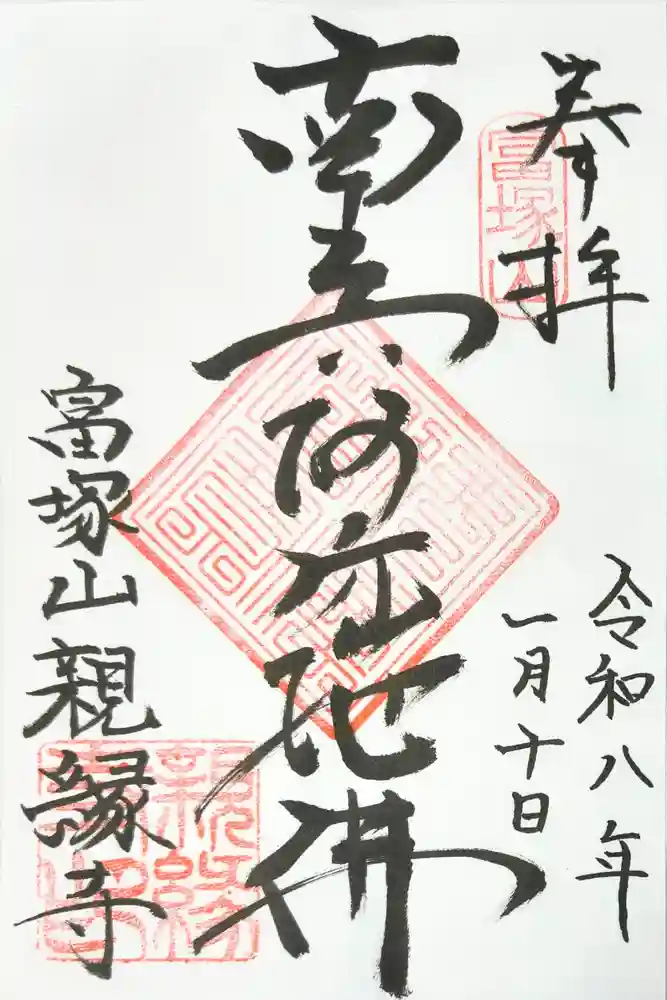 奉拝
富塚山
令和八年
一月十日
南無阿弥陀佛
富塚山親縁寺
親縁
寺